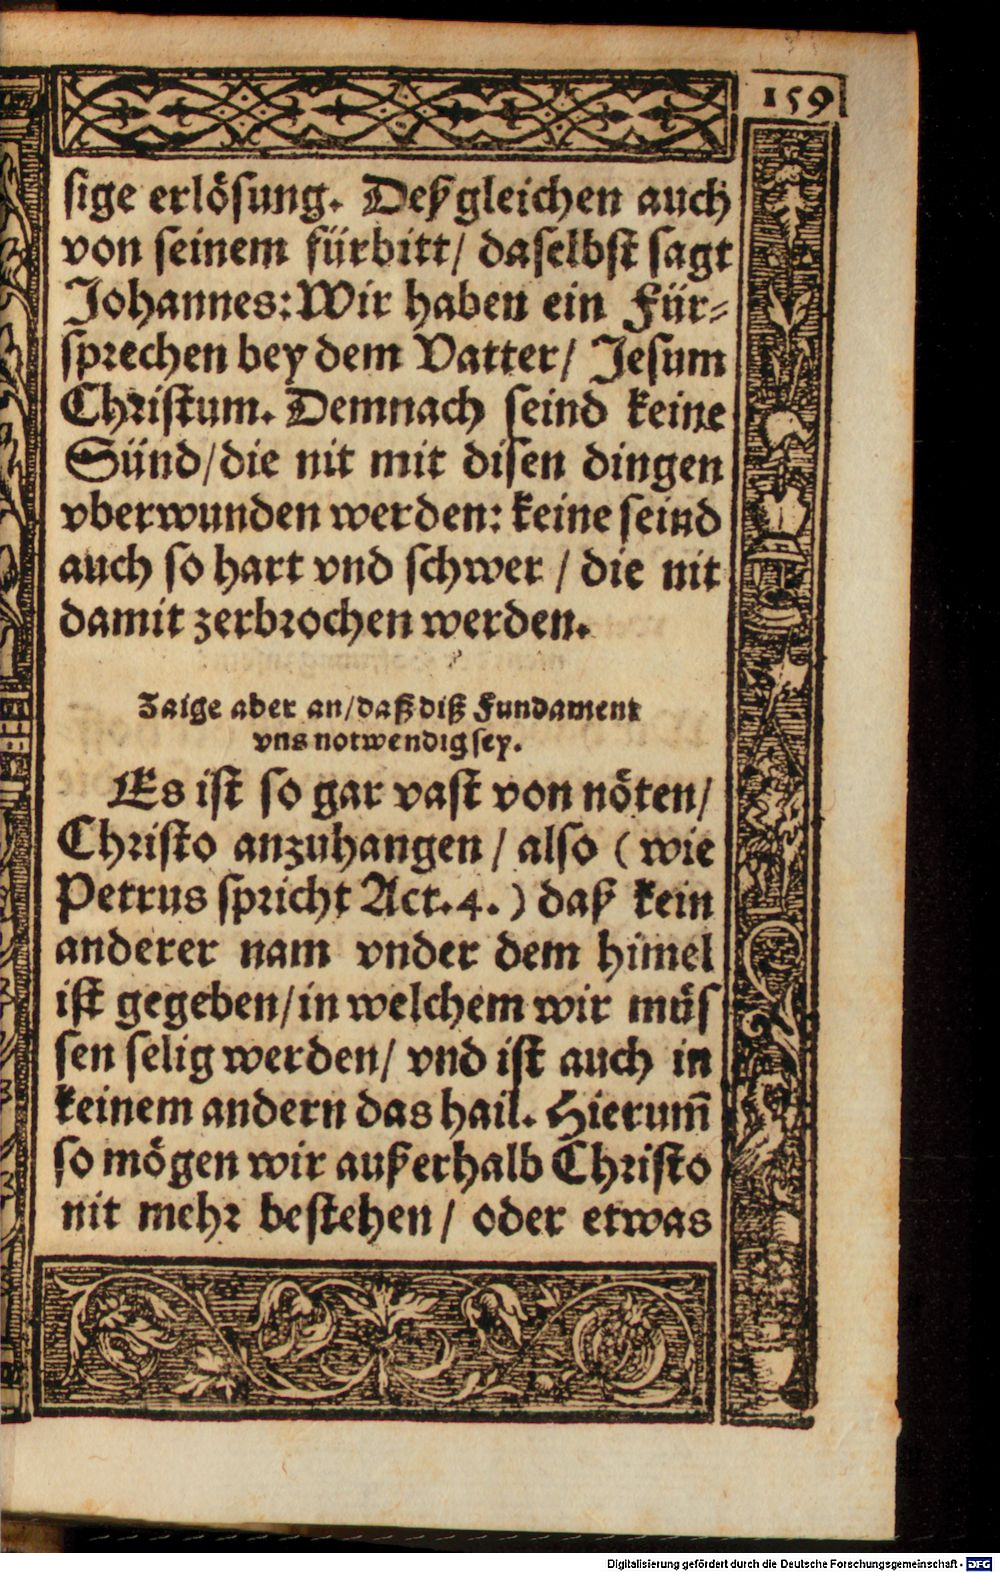 159
sige erlösung. Deßgleichen auch
von seinem fürbitt/ daselbst sagt
Johannes: Wir haben ein Für-
sprechen bey dem Vatter/ Jesum
Christum. Demnach seind keine
Sünd/die nit mit disen dingen
vberwunden werden: keine seind
auch so hart vnd schwer / die nit
damit zerbrochen werden.
Zaige aber an/daß diß Fundament
vns notwendig sey.
Es ist so gar vast von nöten/
Christo anzuhangen / also ( wie
Petrus spricht Act. 4. ) daß kein
anderer nam vnder dem himel
ist gegeben/in welchem wir müs
sen selig werden/ vnd ist auch in
keinem andern das hail. Hierum̃
so mögen wir außerhalb Christo
nit mehr bestehen/ oder etwas
Digitalisierung gefördert durch die Deutsche Forschungsgemeinschaft - DFG